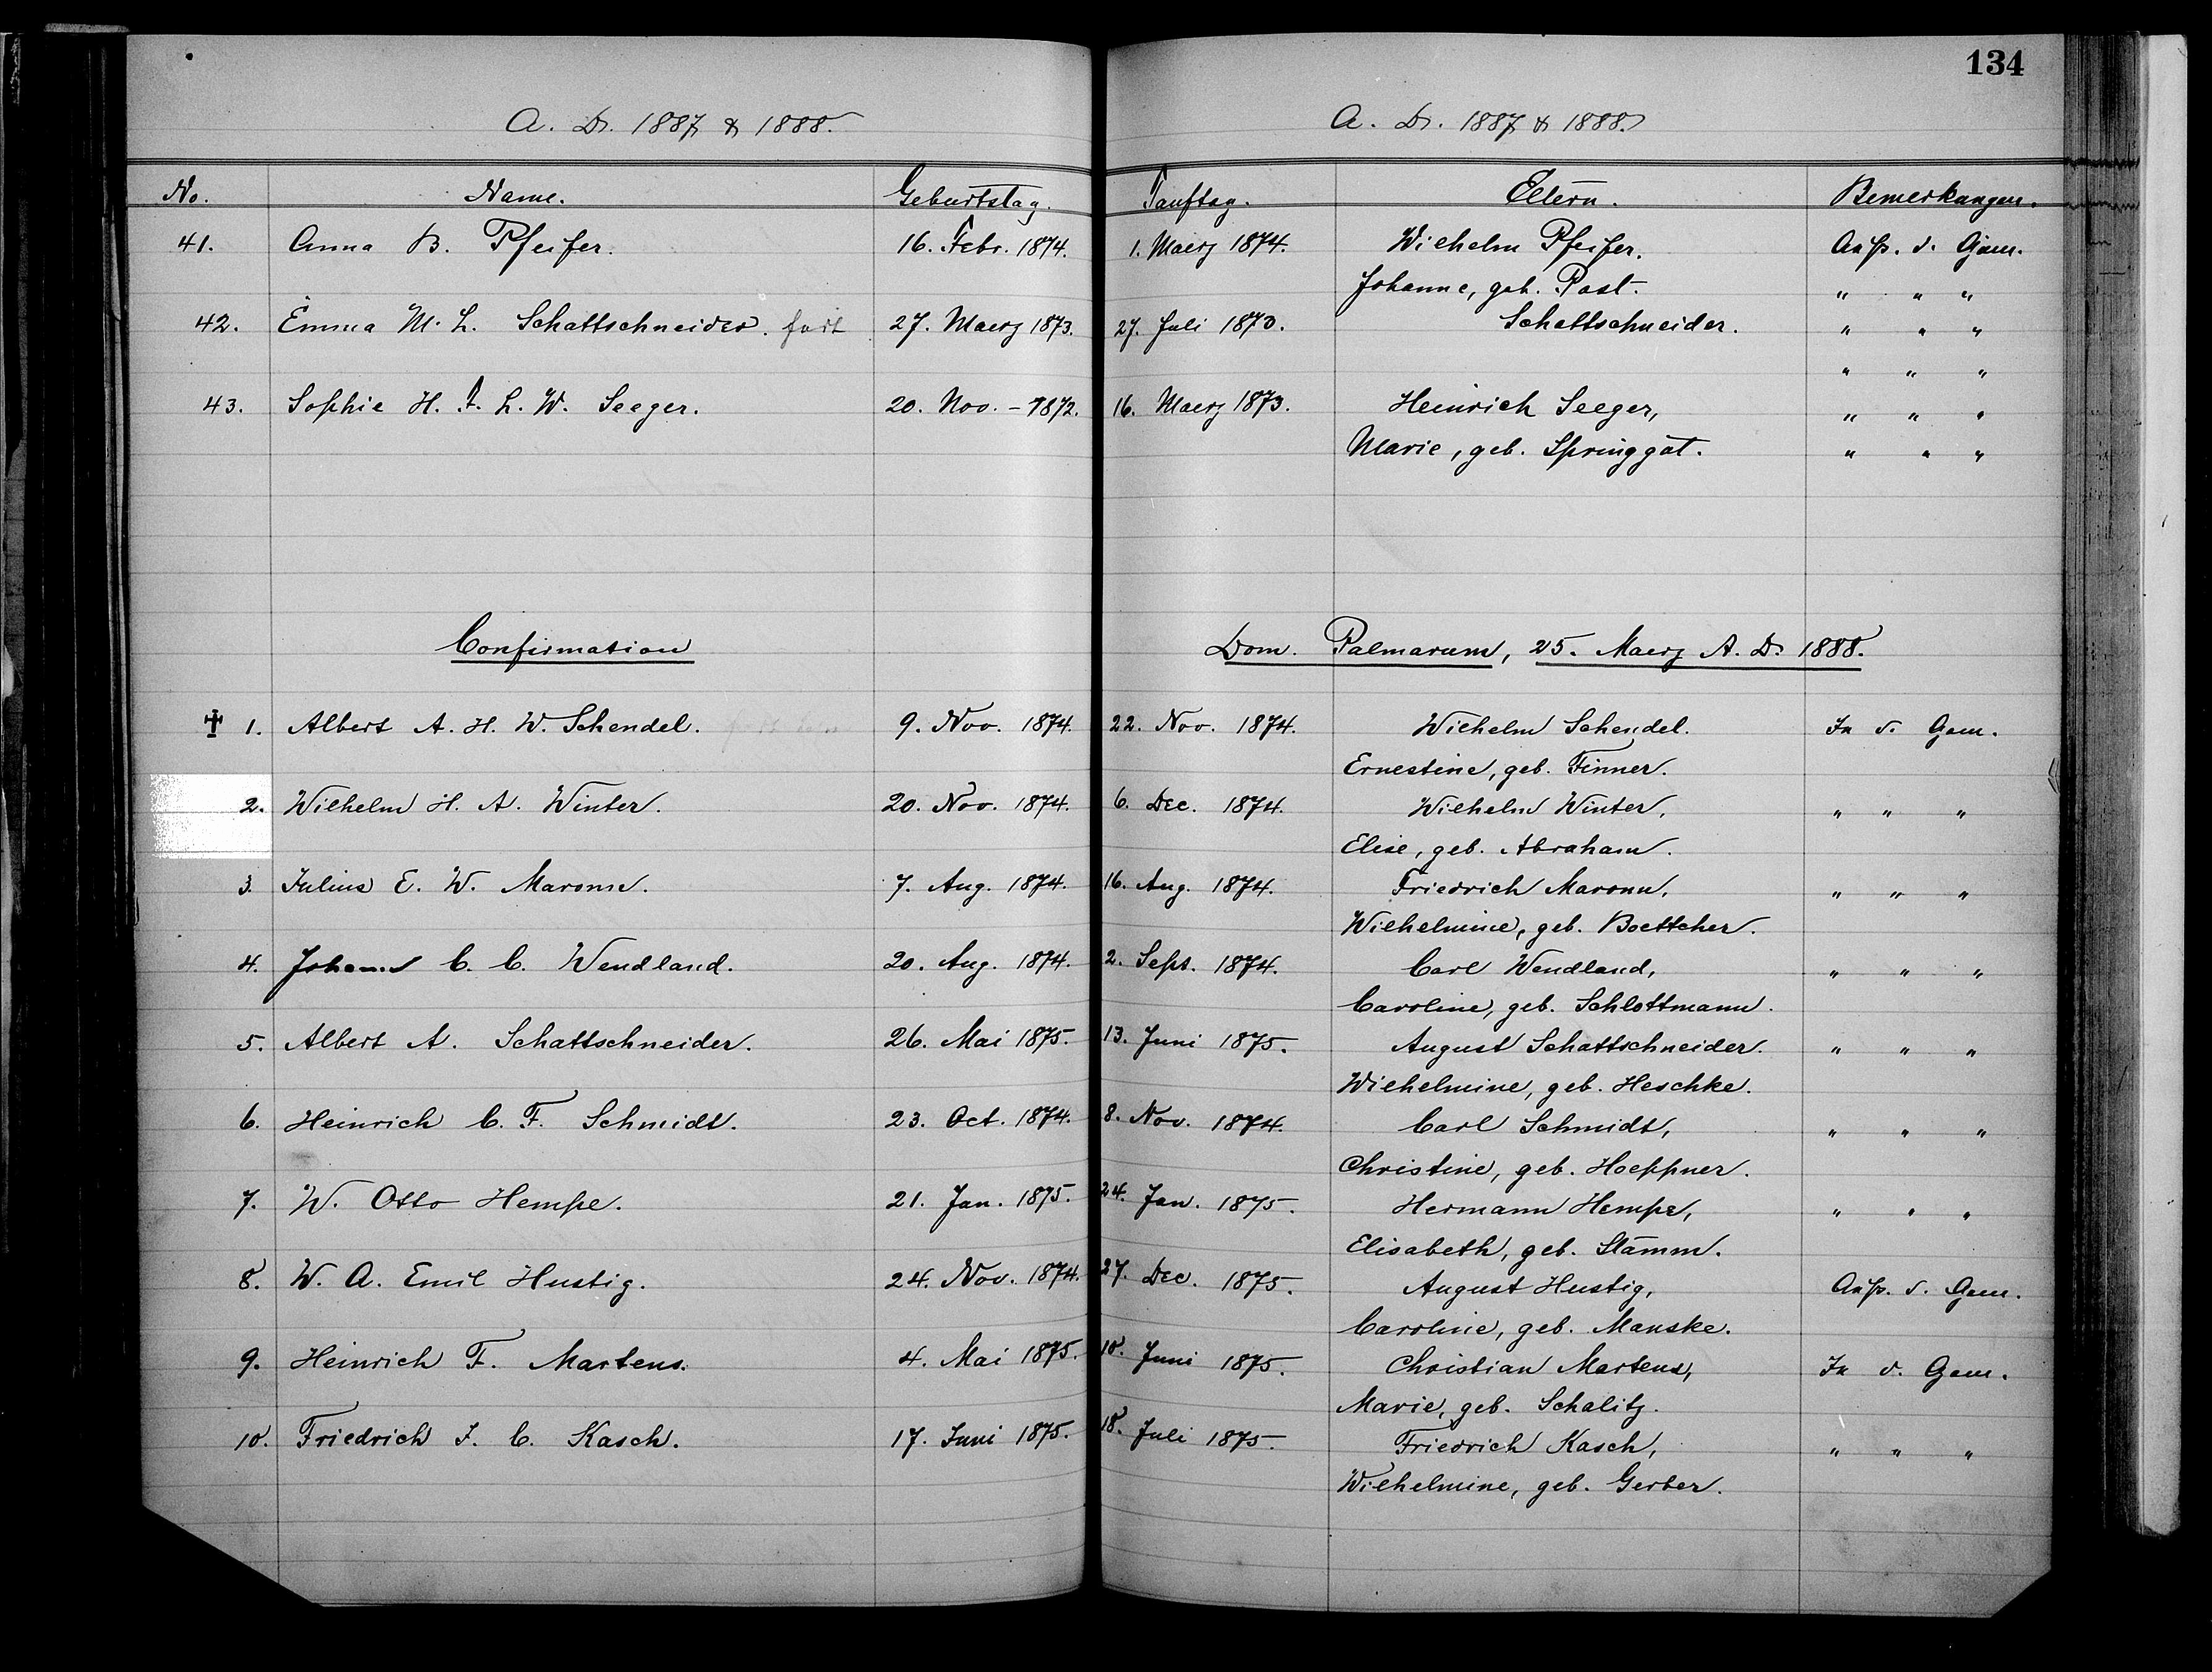 134
A. D. 1887 & 1888. A. D. 1887 & 1888.
No. Name. Geburtstag. Tauftag. Eltern. Bemerkungen.
41. Anna B. Pfeifer. 16. Febr. 1874. 1. Maerz 1874. Wilhelm Pfeifer. Außr. d. Gem.
Johanne, geb. Post. " " "
42. Emma M. L. Schattschneider. fort 27. Maerz 1873. 27. Juli 1873. Schattschneider. " " "
" " "
43. Sophie H. F. L. W. Seeger. 20. Nov. - 1872. 16. Maerz 1873. Heinrich Seeger, " " "
Marie, geb. Springgat. " " "
Confirmation Dom. Palmarum, 25. Maerz A. D. 1888.
1. Albert A. H. W. Schendel. 9. Nov. 1874. 22. Nov. 1874. Wilhelm Schendel. In d. Gem.
Ernestine, geb. Finner.
2. Wilhelm H. A. Winter. 20. Nov. 1874. 6. Dec. 1874. Wilhelm Winter, " " "
Elise, geb. Abraham.
3. Julius E. W. Maronn. 7. Aug. 1874. 16. Aug. 1874. Friedrich Maronn, " " "
Wilhelmine, geb. Boettcher.
4. Johann C. C. Wendland. 20. Aug. 1874. 2. Sept. 1874. Carl Wendland, " " "
Caroline, geb. Schlottmann.
5. Albert A. Schattschneider. 26. Mai 1875. 13. Juni 1875. August Schattschneider. " " "
Wilhelmine, geb. Heschke.
6. Heinrich C. F. Schmidt. 23. Oct. 1874. 8. Nov. 1874. Carl Schmidt, " " "
Christine, geb. Hoeppner.
7. W. Otto Hempe. 21. Jan. 1875. 24. Jan. 1875. Hermann Hempe, " " "
Elisabeth, geb. Stamm.
8. W. A. Emil Hustig. 24. Nov. 1874. 27. Dec. 1875. August Hustig, Außr. d. Gem.
Caroline, geb. Manske.
9. Heinrich F. Martens. 4. Mai 1875. 10. Juni 1875. Christian Martens, In d. Gem.
Marie, geb. Schalitz.
10. Friedrich J. C. Kasch. 17. Juni 1875. 18. Juli 1875. Friedrich Kasch, " " "
Wilhelmine, geb. Gerber.